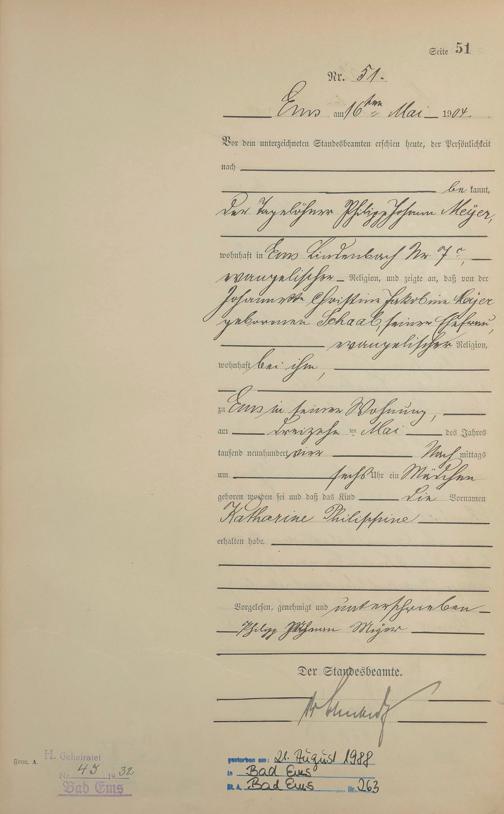 Seite 51
Nr. 51.
Ems am 16ten Mai 1904.
Vor dem unterzeichneten Standesbeamten erschien heute, der Persönlichkeit
nach
bekannt,
der Tagelöhner Philipp Johann Meyer,
wohnhaft in Ems Lindenbach Nr. 7c,
evangelischer Religion, und zeigte an, daß von der
Johannette Christine Jakobine Meyer
geborenen Schaab, seiner Ehefrau,
evangelischer Religion,
wohnhaft bei ihm,
zu Ems in seiner Wohnung,
am dreizehn ten Mai des Jahres
tausend neunhundert vier Nachmittags
um sechs Uhr ein Mädchen
geboren worden sei und daß das Kind die Vornamen
Katharine Philippine
erhalten habe.
Vorgelesen, genehmigt und unterschrieben
Philipp Johann Meyer
Der Standesbeamte.
Form. A.
H. Geheiratet
Nr. 45 1932
Bad Ems
gestorben am: 21. August 1988
in Bad Ems
St. A. Bad Ems Nr. 263